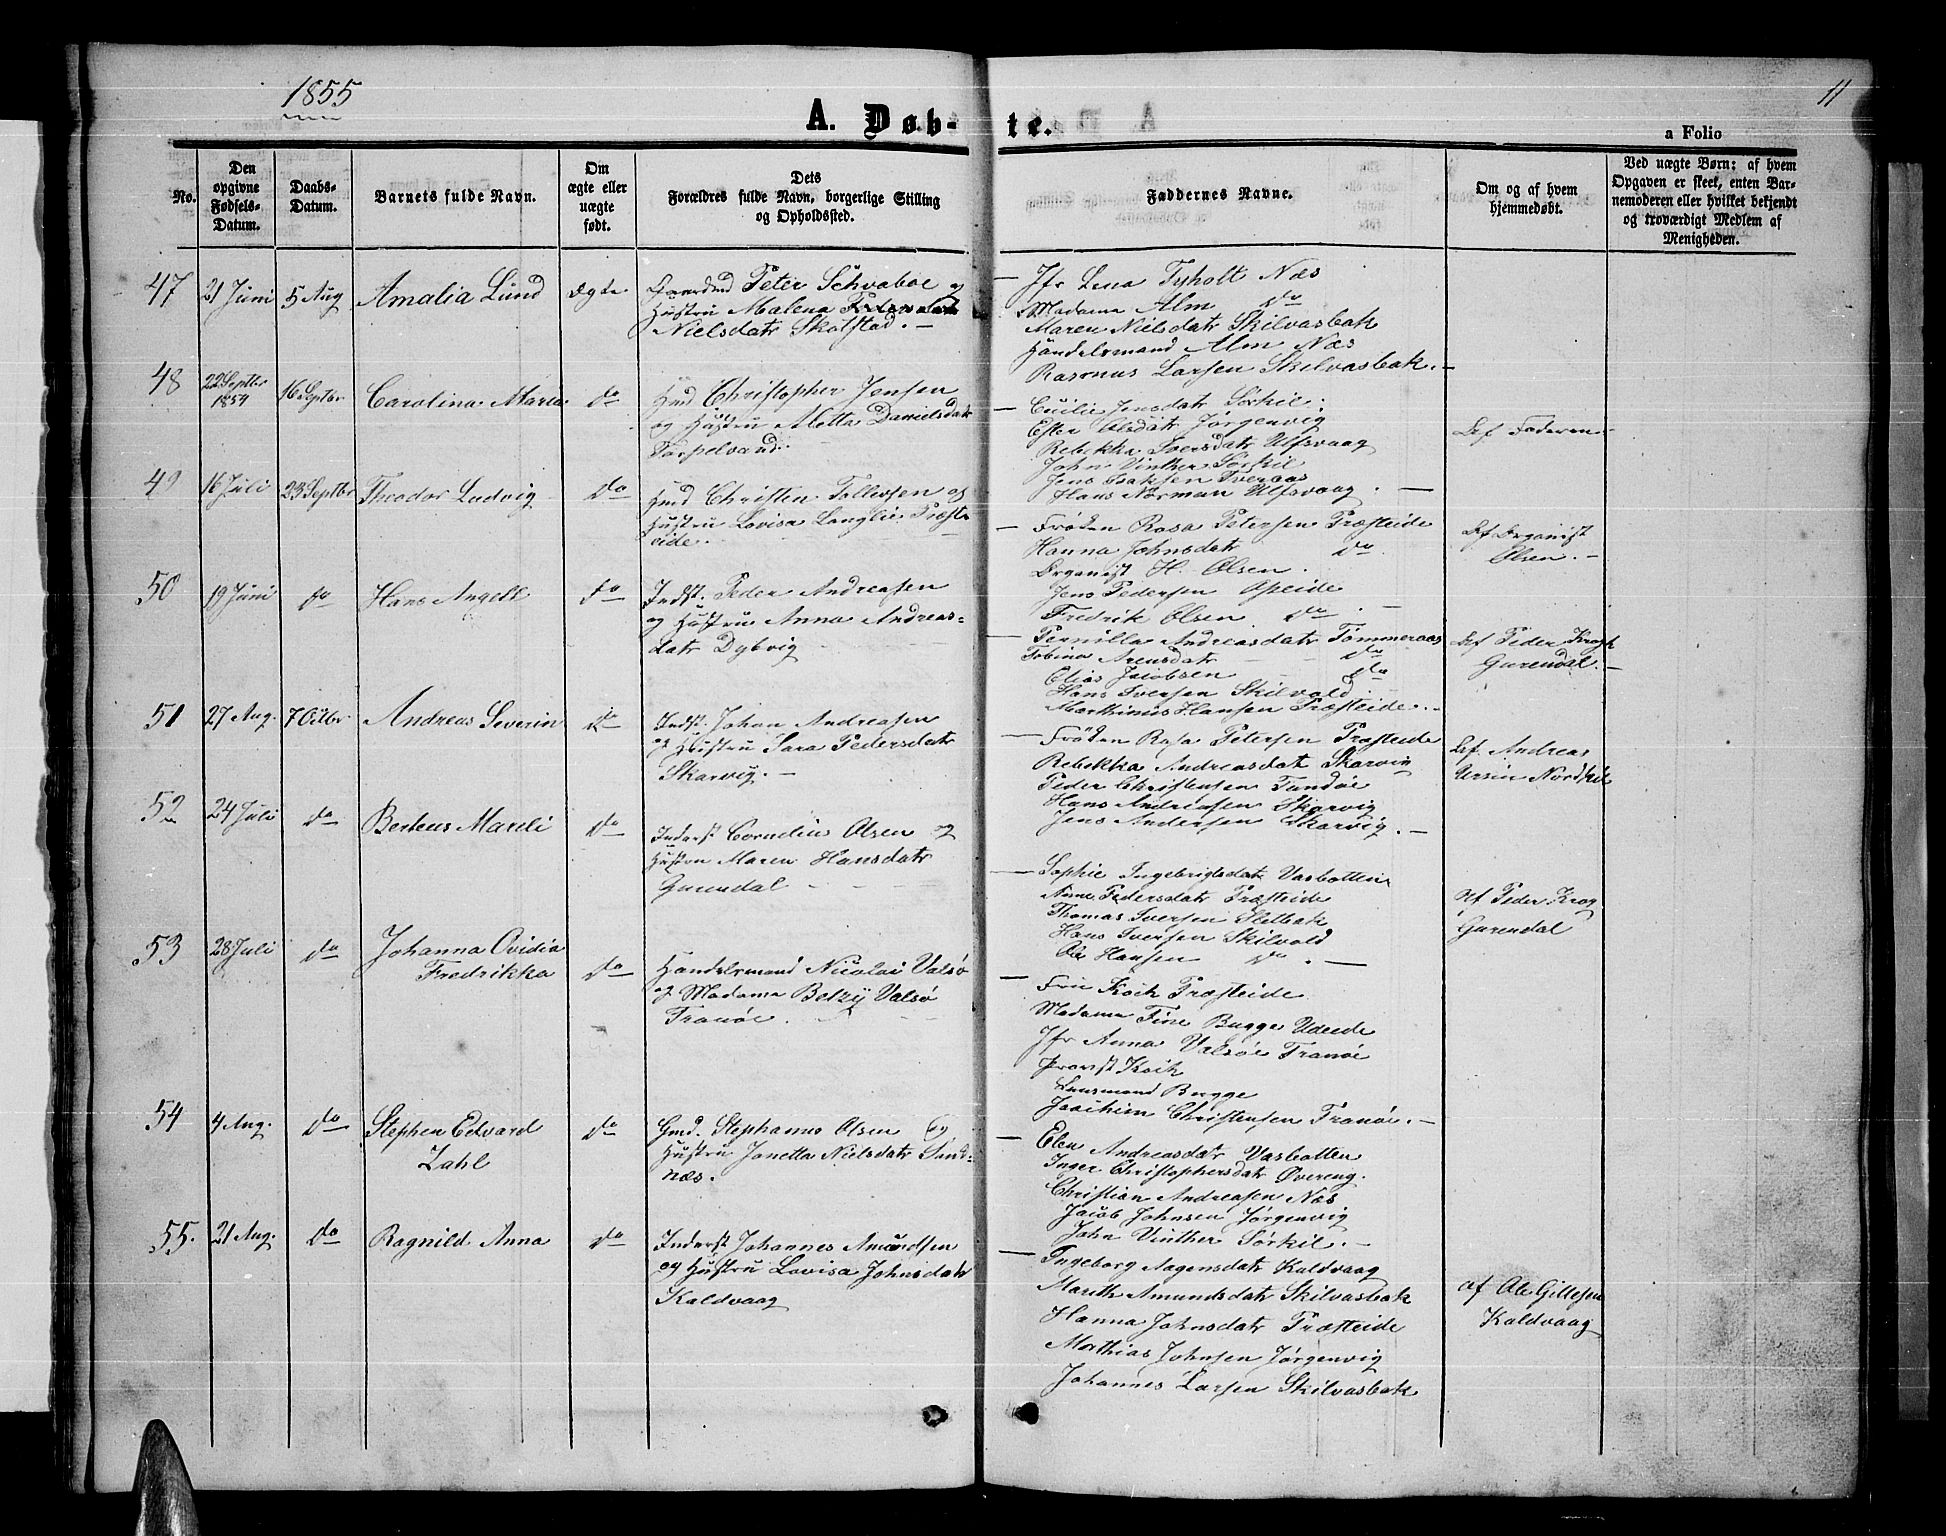 1855
11
A. Døb-
te.
a Folio
No.
Den
opgivne
Fødsels-
Datum.
Daabs-
Datum.
Barnets fulde Navn.
Om
ægte eller
uægte
født.
Dets
Forældres fulde Navn, borgerlige Stilling
og Opholdssted.
Faddernes Navne.
Om og af hvem
hjemmedøbt.
Ved uægte Børn: af hvem
Opgaven er skeet, enten Bar-
nemoderen eller hvilket bekjendt
og troværdigt Medlem af
Menigheden.
47 21 Juni 5 Aug Amalia Lund ægte
Gaardmd Peter Schvaboe og
Hustru Malena
Nielsdatr Skotstad. —
— Jfr Lena Tyholt Næs
Madame Alm do
Maren Nielsdatr Skilvasbak
Handelsmand Alm Næs
Rasmus Larsen Skilvasbak. —
48 22 Septbr
1854
16 Septbr Carolina Maria do
Hmd Christopher Jensen
og Hustru Aletta Danielsdatr
Torpelvand.
— Cecilie Jensdatr Sørkil.
Ester Olsdatr Jørgenvig
Rebekka Iversdatr Ulfsvaag
John Vinther Sørkil
Jens Isaksen Tveraas
Hans Norman Ulfsvaag. —
Af Faderen —
49 16 Juli 23 Septbr Theodor Ludvig do
Hmd Christen Tollevsen og
Hustru Lovisa Langlie Præst-
eide.
— Frøken Rosa Petersen Præsteide
Hanna Johnsdatr do
Organist H. Olsen.
Jens Pedersen Opeide
Fredrik Olsen do —
Af Organist
Olsen. —
50 19 Juni do Hans Angell do
Indst. Peder Andreasen
og Hustru Anna Andreas-
datr Dybvig
— Pernilla Andreasdatr Tømmeraas
Tobina Arensdatr do
Elias Jacobsen do
Hans Iversen Skilvold
Marthinus Hansen Præsteide. —
Af Peder Krogh
Gurendal. —
51 27 Aug. 7 Octbr Andreas Severin do
Indst. Johan Andreasen
og Hustru Sara Pedersdatr
Skarvig. —
— Frøken Rosa Petersen Præsteide
Rebekka Andreasdat Skarvig
Peder Christensen Fundøe
Hans Andreasen Skarvig
Jens Andersen Skarvig. —
Af. Andreas
Ursin Nordkil
52 24 Juli do Berteus Mareli do
Inderst Cornelius Olsen og
Hustru Maren Hansdatr
Gurendal
— Sophie Ingebrigtsdatr Vasbotten
Anne Pedersdatr Præsteide
Thomas Iversen Sletbak
Hans Iversen Skilvold
Ole Hansen do . —
Af Peder Krog
Gurendal
53 28 Juli do Johanna Ovidia
Fredrikka
do
Handelsmand Nicolai Valsø
og Madame Betzy Valsø
Tranøe.
— Fru Koch Præsteide
Madame Fine Bugge Udeide
Jfr Anna Valsøe Tranøe
Provst Koch
Lensmand Bugge
Joachim Christensen Tranøe. —
54 4 Aug. do Stephen Edvard
Zahl
do
Gmd. Stephanus Olsen og
Hustru Janetta Nielsdatr Sand-
næs.
— Elen Andreasdatr Vasbotten
Inger Christophersdatr Øvereng.
Christian Andreasen Næs
Jacob Johnsen Jørgenvig
John Vinther Sørkil. —
55. 21 Aug. do Ragnild Anna do
Inderst Johannes Amundsen
og Hustru Lovisa Johnsdatr
Kaldvaag
— Ingeborg Aagensdatr Kaldvaag
Marith Amundsdatr Skilvasbak
Hanna Johnsdatr Præsteide
Mathias Johnsen Jørgenvig
Johannes Larsen Skilvasbak
af Ole Gillesen
Kaldvaag